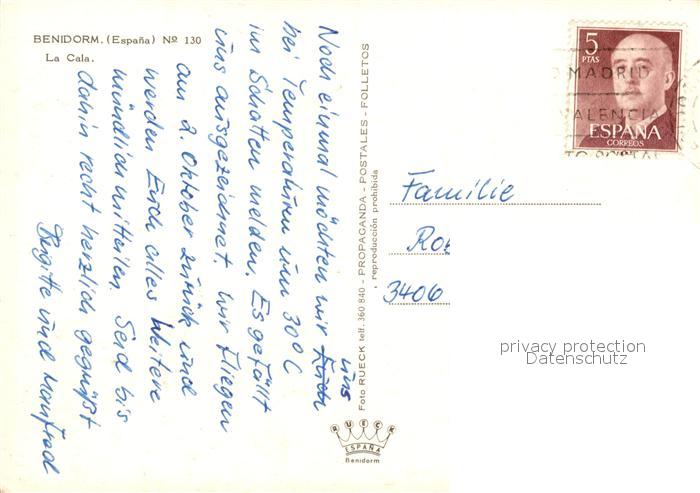 BENIDORM. (España) Nº 130
La Cala.
Noch einmal möchten wir Euch uns
bei Temperaturen um 30°C
im Schatten melden. Es gefällt
uns ausgezeichnet. Wir fliegen
am 2. Oktober zurück und
werden Euch alles Weitere
mündlich mitteilen. Seid bis
dahin recht herzlich gegrüßt
Brigitte und Manfred
Foto RUECK telf. 360 840 - PROPAGANDA - POSTALES - FOLLETOS
reproducción prohibida
RUECK
ESPAÑA
Benidorm
5
PTAS
ESPAÑA
CORREOS
MADRID
VALENCIA
Familie
3406
privacy protection
Datenschutz